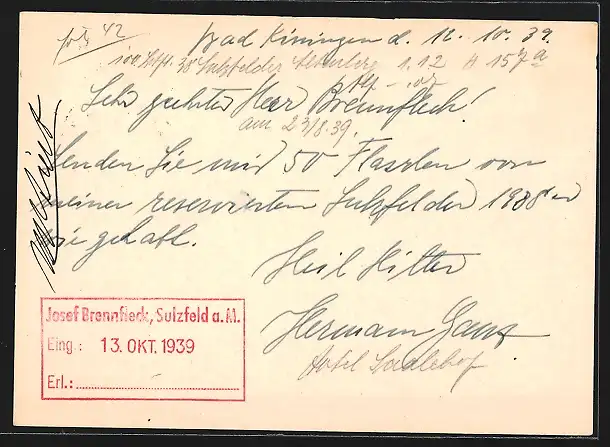 Bad Kissingen d. 12. 10. 39.
Sehr geehrter Herr Brennfleck!
am 23/8.39.
Senden Sie mir 50 Flaschen von
meiner reservierten Sulzfelder 1938er
wie gehabt.
Heil Hitler
Hermann Ganz
Hotel Saalehof
Josef Brennfleck, Sulzfeld a. M.
Eing.: 13. OKT. 1939
Erl.: